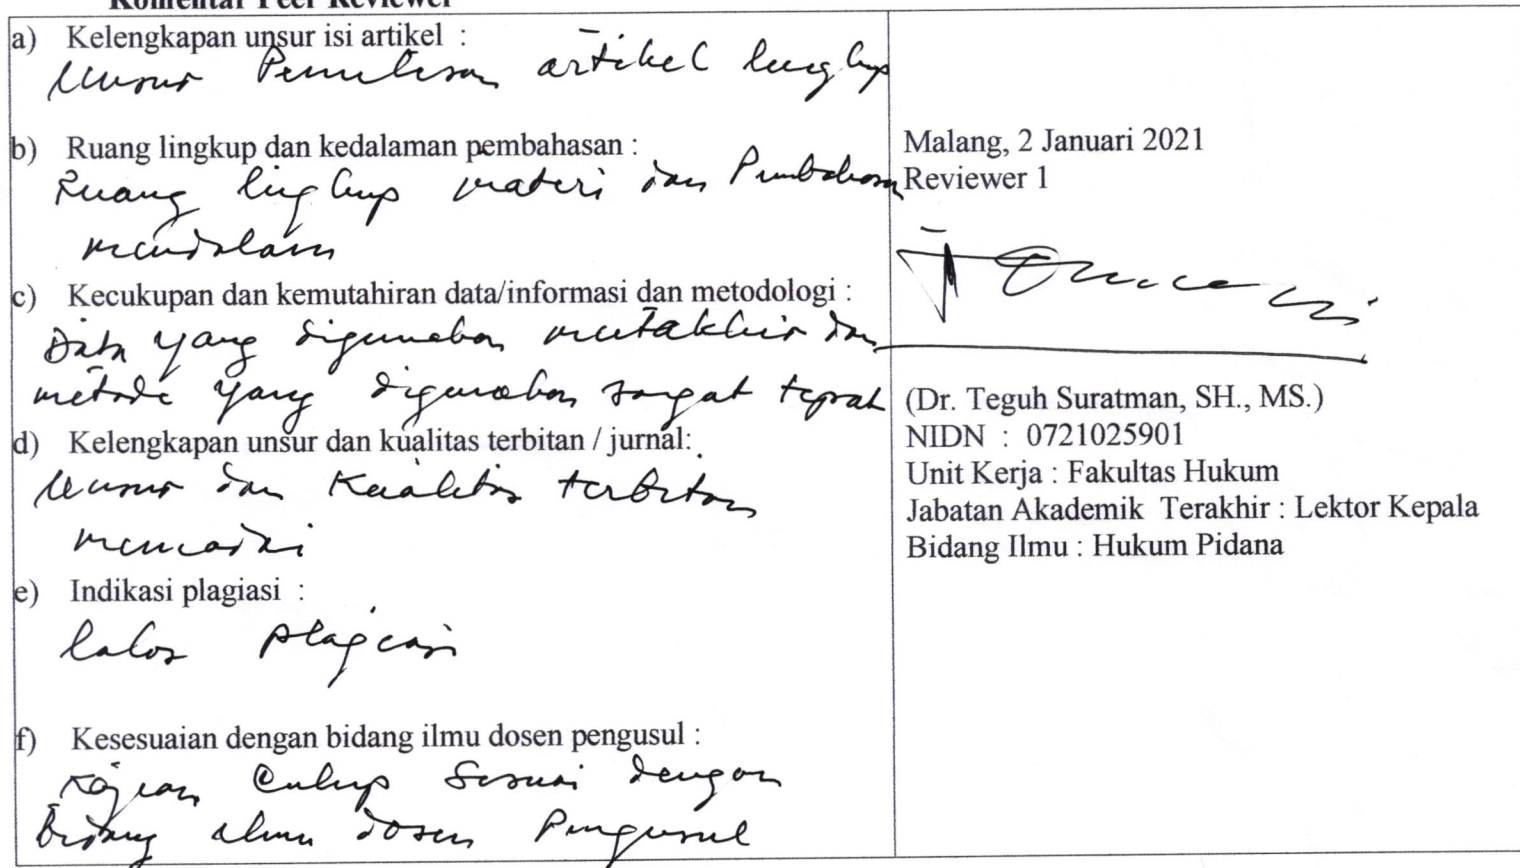 Komentar Peer Reviewer
a) Kelengkapan unsur isi artikel :
Unsur Penulisan artikel lengkap
b) Ruang lingkup dan kedalaman pembahasan :
Ruang lingkup materi dan Pembahasan
mendalam
c) Kecukupan dan kemutahiran data/informasi dan metodologi :
Data yang digunakan mutakhir dan
metode yang digunakan sangat tepat
d) Kelengkapan unsur dan kualitas terbitan / jurnal:
Unsur dan Kualitas terbitan
memadai
e) Indikasi plagiasi :
lolos plagiasi
f) Kesesuaian dengan bidang ilmu dosen pengusul :
Kajian Cukup Sesuai dengan
bidang ilmu dosen Pengusul
Malang, 2 Januari 2021
Reviewer 1
(Dr. Teguh Suratman, SH., MS.)
NIDN : 0721025901
Unit Kerja : Fakultas Hukum
Jabatan Akademik Terakhir : Lektor Kepala
Bidang Ilmu : Hukum Pidana